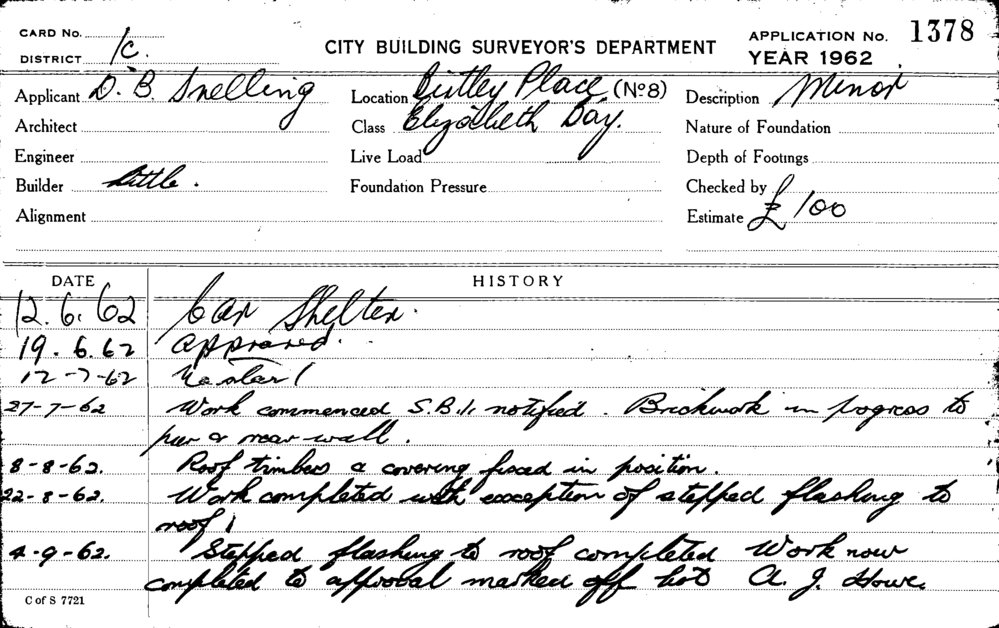 CARD No.
DISTRICT 1c.
CITY BUILDING SURVEYOR'S DEPARTMENT
APPLICATION No. 1378
YEAR 1962
Applicant D. B. Snelling
Location Birtley Place (No8)
Description Minor
Architect
Class Elizabeth Bay.
Nature of Foundation
Engineer
Live Load
Depth of Footings
Builder Little.
Foundation Pressure
Checked by
Alignment
Estimate £ 100
DATE
HISTORY
12.6.62 Car Shelter.
19.6.62 Approved.
12-7-62 No start
27-7-62 Work commenced S.B.I. notified. Brickwork in progress to
pier & rear wall.
8-8-62. Roof timbers & covering fixed in position.
22-8-62. Work completed with exception of stepped flashing to
roof
4-9-62. Stepped flashing to roof completed Work now
completed to approval marked off list A. J. Howe
C of S 7721